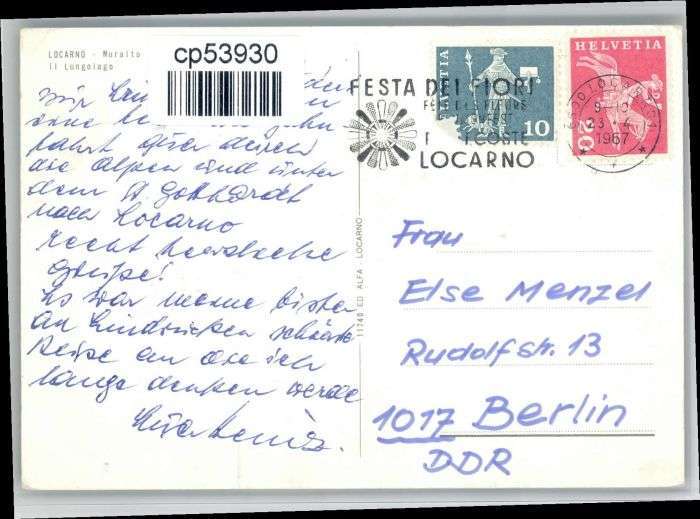 LOCARNO - Muralto
Il Lungolago
cp53930
wir
eine
fahrt über
die Alpen und unter
dem St Gotthardt
nach Locarno
recht herzliche
Grüße!
Es war meine bisher
an Eindrücken schönste
Reise an die ich
lange denken werde
11740 ED ALFA - LOCARNO
FESTA DEI FIORI
LOCARNO
HELVETIA
10
HELVETIA
20
1967
Frau
Else Menzel
Rudolfstr. 13
1017 Berlin
DDR